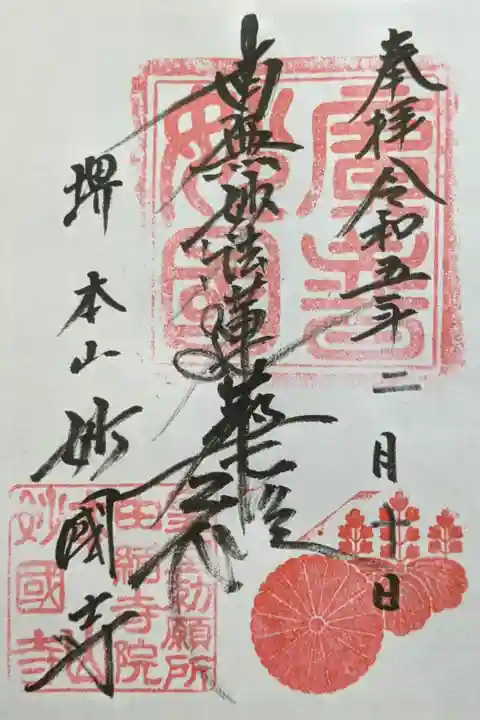 奉拝 令和五年二月十日
南無妙法蓮華経
堺 本山 妙國寺
勅願所
由緒寺院
妙國寺